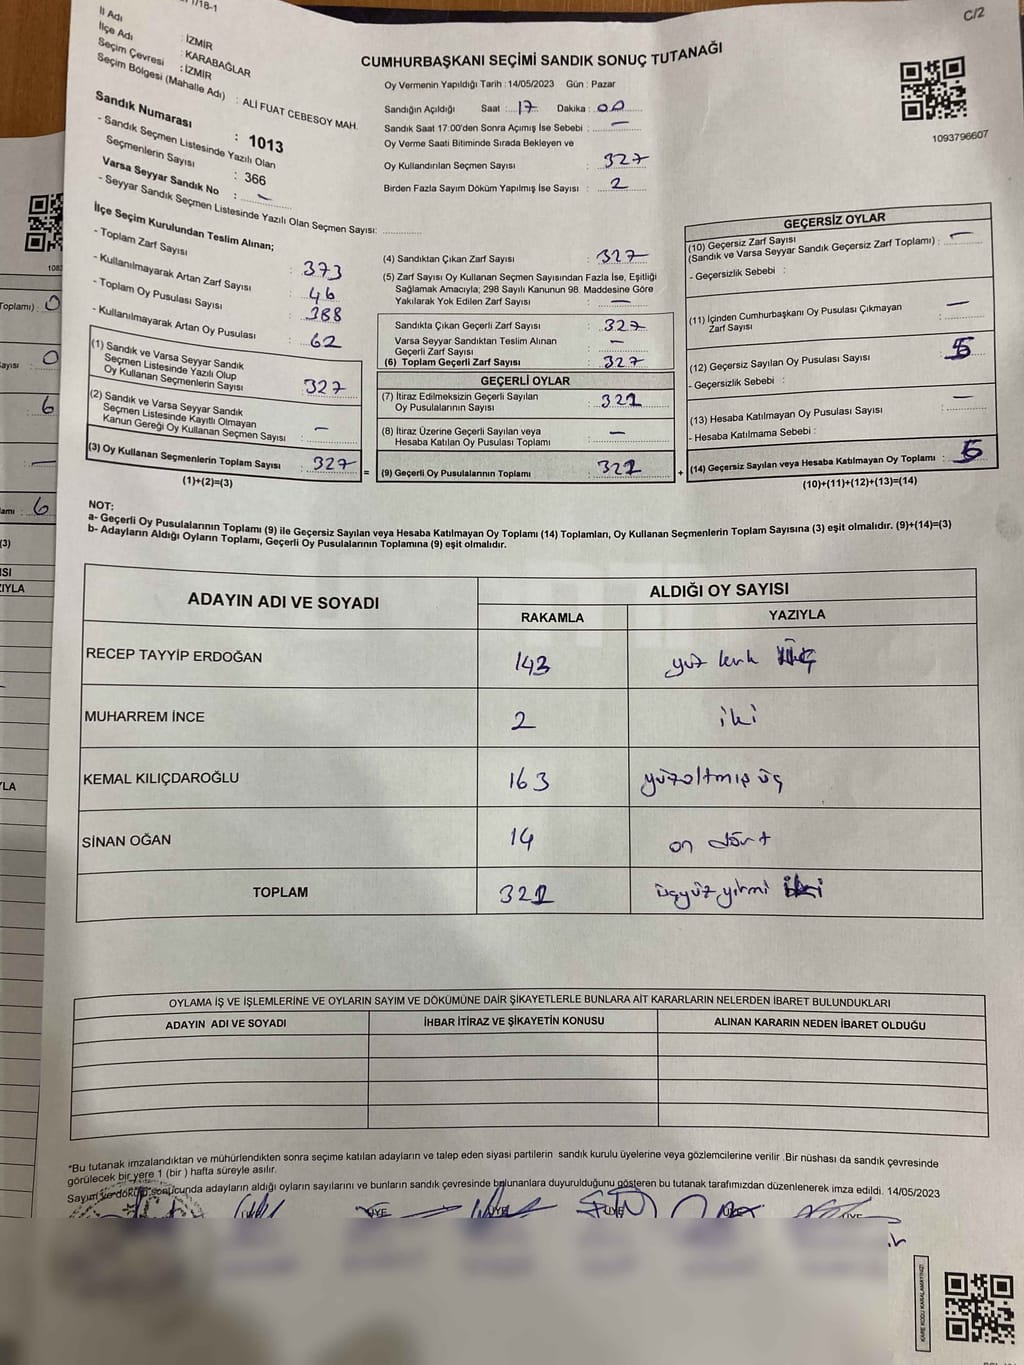 /18-1
C/2
İl Adı : İZMİR
İlçe Adı : KARABAĞLAR
Seçim Çevresi : İZMİR
Seçim Bölgesi (Mahalle Adı) : ALİ FUAT CEBESOY MAH.
CUMHURBAŞKANI SEÇİMİ SANDIK SONUÇ TUTANAĞI
Oy Vermenin Yapıldığı Tarih : 14/05/2023 Gün : Pazar
Sandığın Açıldığı Saat : 17 Dakika : 00
Sandık Saat 17:00'den Sonra Açımış İse Sebebi : —
Oy Verme Saati Bitiminde Sırada Bekleyen ve
Oy Kullandırılan Seçmen Sayısı : 327
Birden Fazla Sayım Döküm Yapılmış İse Sayısı : 2
1093796607
Sandık Numarası : 1013
- Sandık Seçmen Listesinde Yazılı Olan
Seçmenlerin Sayısı : 366
Varsa Seyyar Sandık No : —
- Seyyar Sandık Seçmen Listesinde Yazılı Olan Seçmen Sayısı:
İlçe Seçim Kurulundan Teslim Alınan;
- Toplam Zarf Sayısı : 373
- Kullanılmayarak Artan Zarf Sayısı : 46
- Toplam Oy Pusulası Sayısı : 388
- Kullanılmayarak Artan Oy Pusulası : 62
(1) Sandık ve Varsa Seyyar Sandık
Seçmen Listesinde Yazılı Olup
Oy Kullanan Seçmenlerin Sayısı : 327
(2) Sandık ve Varsa Seyyar Sandık
Seçmen Listesinde Kayıtlı Olmayan
Kanun Gereği Oy Kullanan Seçmen Sayısı : —
(3) Oy Kullanan Seçmenlerin Toplam Sayısı : 327
(1)+(2)=(3)
=
(4) Sandıktan Çıkan Zarf Sayısı : 327
(5) Zarf Sayısı Oy Kullanan Seçmen Sayısından Fazla İse, Eşitliği
Sağlamak Amacıyla; 298 Sayılı Kanunun 98. Maddesine Göre
Yakılarak Yok Edilen Zarf Sayısı : —
Sandıkta Çıkan Geçerli Zarf Sayısı : 327
Varsa Seyyar Sandıktan Teslim Alınan
Geçerli Zarf Sayısı : —
(6) Toplam Geçerli Zarf Sayısı : 327
GEÇERLİ OYLAR
(7) İtiraz Edilmeksizin Geçerli Sayılan
Oy Pusulalarının Sayısı : 322
(8) İtiraz Üzerine Geçerli Sayılan veya
Hesaba Katılan Oy Pusulası Toplamı : —
(9) Geçerli Oy Pusulalarının Toplamı : 322
+
GEÇERSİZ OYLAR
(10) Geçersiz Zarf Sayısı
(Sandık ve Varsa Seyyar Sandık Geçersiz Zarf Toplamı) : —
- Geçersizlik Sebebi :
(11) İçinden Cumhurbaşkanı Oy Pusulası Çıkmayan
Zarf Sayısı : —
(12) Geçersiz Sayılan Oy Pusulası Sayısı : 5
- Geçersizlik Sebebi :
(13) Hesaba Katılmayan Oy Pusulası Sayısı : —
- Hesaba Katılmama Sebebi :
(14) Geçersiz Sayılan veya Hesaba Katılmayan Oy Toplamı : 5
(10)+(11)+(12)+(13)=(14)
NOT:
a- Geçerli Oy Pusulalarının Toplamı (9) ile Geçersiz Sayılan veya Hesaba Katılmayan Oy Toplamı (14) Toplamları, Oy Kullanan Seçmenlerin Toplam Sayısına (3) eşit olmalıdır. (9)+(14)=(3)
b- Adayların Aldığı Oyların Toplamı, Geçerli Oy Pusulalarının Toplamına (9) eşit olmalıdır.
ADAYIN ADI VE SOYADI
ALDIĞI OY SAYISI
RAKAMLA YAZIYLA
RECEP TAYYİP ERDOĞAN 143 yüz kırk üç
MUHARREM İNCE 2 iki
KEMAL KILIÇDAROĞLU 163 yüzaltmış üç
SİNAN OĞAN 14 on dört
TOPLAM 322 üçyüzyirmi iki
OYLAMA İŞ VE İŞLEMLERİNE VE OYLARIN SAYIM VE DÖKÜMÜNE DAİR ŞİKAYETLERLE BUNLARA AİT KARARLARIN NELERDEN İBARET BULUNDUKLARI
ADAYIN ADI VE SOYADI İHBAR İTİRAZ VE ŞİKAYETİN KONUSU ALINAN KARARIN NEDEN İBARET OLDUĞU
*Bu tutanak imzalandıktan ve mühürlendikten sonra seçime katılan adayların ve talep eden siyasi partilerin sandık kurulu üyelerine veya gözlemcilerine verilir .Bir nüshası da sandık çevresinde
görülecek bir yere 1 (bir ) hafta süreyle asılır.
Sayım ve döküm sonucunda adayların aldığı oyların sayılarını ve bunların sandık çevresinde bulunanlara duyurulduğunu gösteren bu tutanak tarafımızdan düzenlenerek imza edildi. 14/05/2023
ÜYE ÜYE ÜYE ÜYE
KARE KODU KARALAMAYINIZ!
108
Toplamı) : 0
ayısı : 0
6
: —
amı : 6
(3)
ISI
ZIYLA
YLA